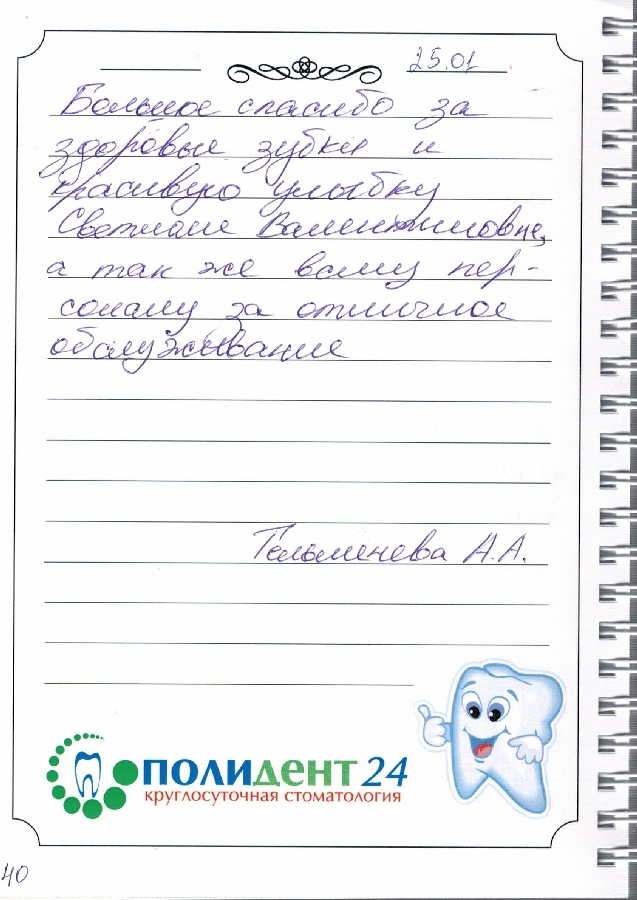 25.01
Большое спасибо за
здоровые зубки и
красивую улыбку
Светлане Валентиновне,
а так же всему пер-
соналу за отличное
обслуживание
А.А.
ПОЛИДЕНТ 24
круглосуточная стоматология
40